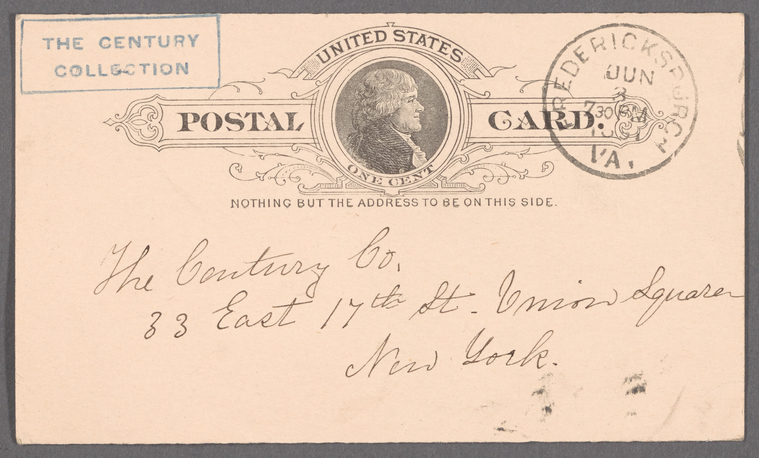 THE CENTURY
COLLECTION
UNITED STATES
POSTAL CARD.
ONE CENT
NOTHING BUT THE ADDRESS TO BE ON THIS SIDE.
FREDERICKSBURG
JUN
3
730PM
VA.
The Century Co.
33 East 17th St. Union Square
New York.